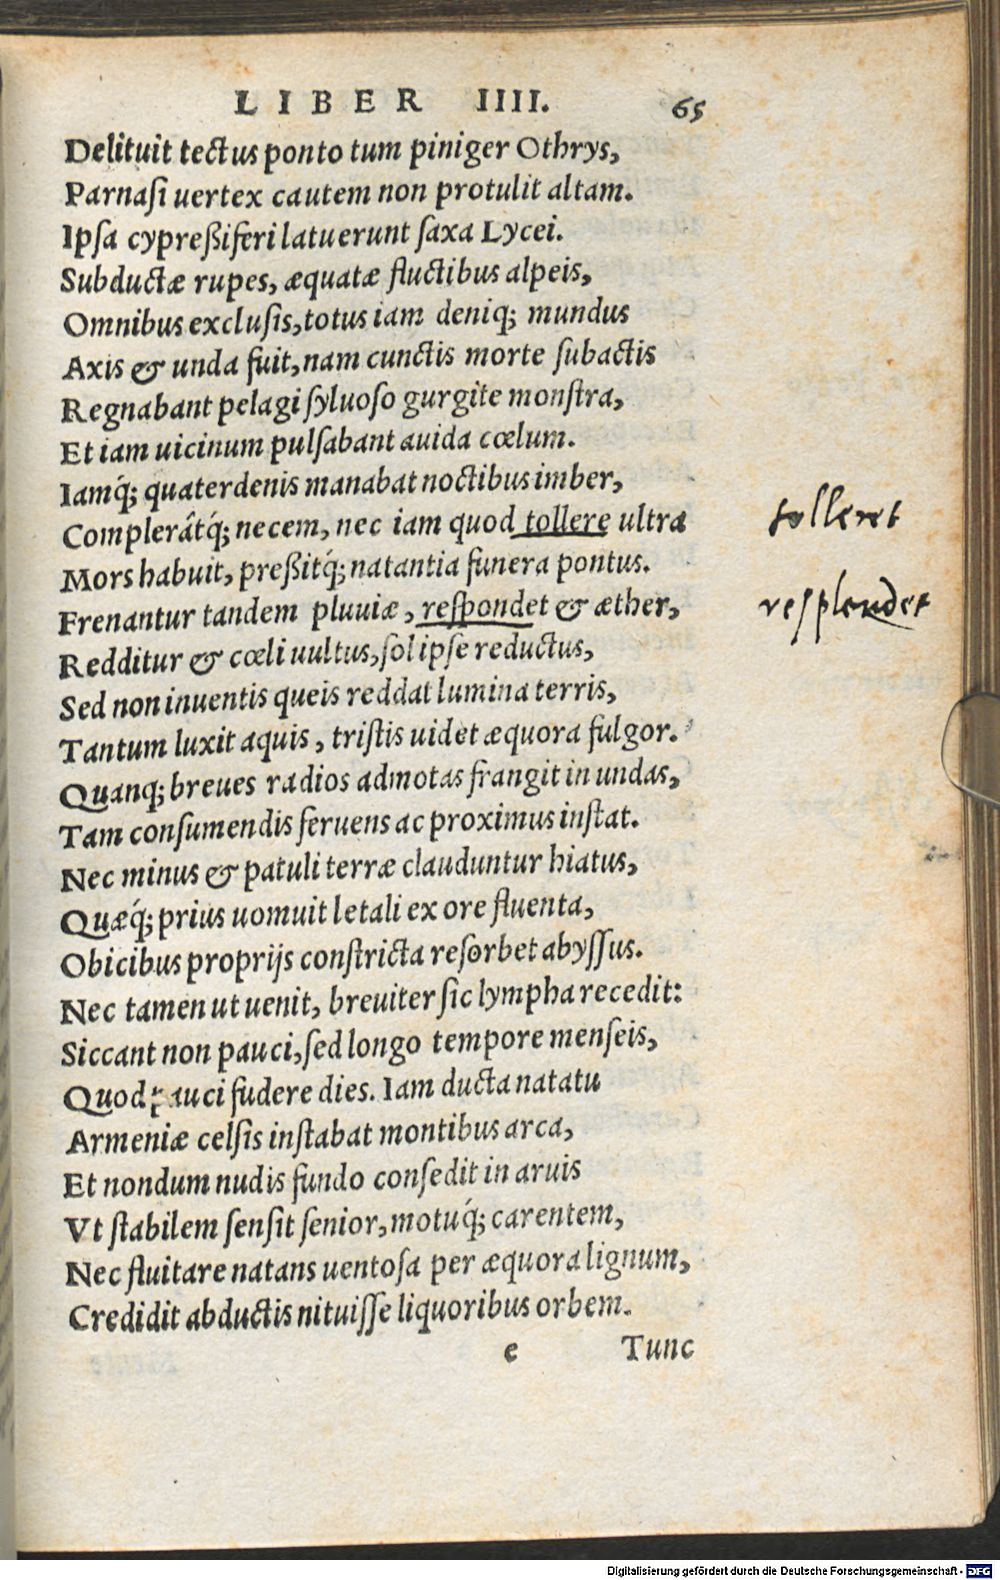 LIBER IIII. 65
Delituit tectus ponto tum piniger Othrys,
Parnasi uertex cautem non protulit altam.
Ipsa cypreßiferi latuerunt saxa Lycei.
Subductæ rupes, æquatæ fluctibus alpeis,
Omnibus exclusis, totus iam deniq; mundus
Axis & unda fuit, nam cunctis morte subactis
Regnabant pelagi syluoso gurgite monstra,
Et iam uicinum pulsabant auida cœlum.
Iamq́; quaterdenis manabat noctibus imber,
Complerâtq́; necem, nec iam quod tollere ultra
tolleret
Mors habuit, preßitq́; natantia funera pontus.
Frenantur tandem pluuiæ, respondet & æther,
resplendet
Redditur & cœli uultus, sol ipse reductus,
Sed non inuentis queis reddat lumina terris,
Tantum luxit aquis, tristis uidet æquora fulgor.
Quanq; breues radios admotas frangit in undas,
Tam consumendis feruens ac proximus instat.
Nec minus & patuli terræ clauduntur hiatus,
Quæq́; prius uomuit letali ex ore fluenta,
Obicibus proprijs constricta resorbet abyssus.
Nec tamen ut uenit, breuiter sic lympha recedit:
Siccant non pauci, sed longo tempore menseis,
Quod pauci fudere dies. Iam ducta natatu
Armeniæ celsis instabat montibus arca,
Et nondum nudis fundo consedit in aruis
Vt stabilem sensit senior, motuq́; carentem,
Nec fluitare natans uentosa per æquora lignum,
Credidit abductis nituisse liquoribus orbem.
e Tunc
Digitalisierung gefördert durch die Deutsche Forschungsgemeinschaft - DFG